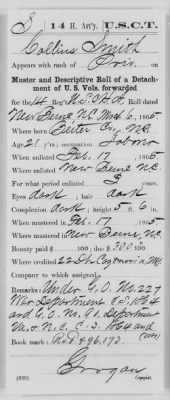 S | 14 H. Art'y. | U.S.C.T.
Collins Smith
Appears with rank of Priv. on
Muster and Descriptive Roll of a Detach-
ment of U. S. Vols. forwarded
for the 14 Reg't U.S.C.H.A. Roll dated
New Berne, N.C. Mch 6, 1865.
Where born Beaufort Co., N.C.
Age 21 y'rs; occupation Labor
When enlisted Feb. 17, 1865.
Where enlisted New Berne N.C.
For what period enlisted 3 years.
Eyes dark; hair dark
Complexion dark; height 5 ft. 6 in.
When mustered in Feb. 17, 1865
Where mustered in New Berne, N.C.
Bounty paid $ 100; due $ 300 100
Where credited 22 Dt.
Company to which assigned
Remarks: Under G.O. No. 227
War Department C.S. 1864
and G.O. No. 91 Department
Va. & N.C. C.S. 1864 and
Book mark: R. & P. 496,173
Grogan
Copyist.